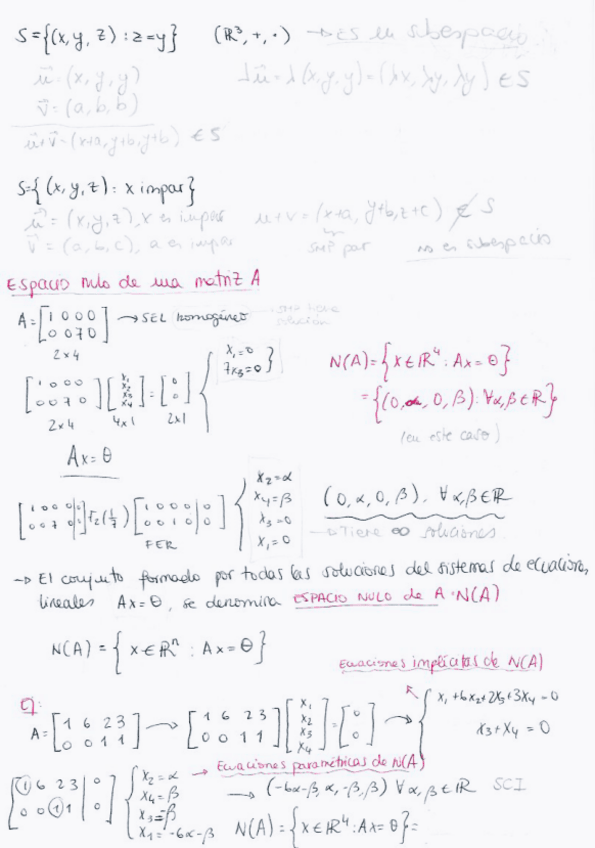 S={(x, y, z) : z=y} (ℝ³, +, ·) → es un subespacio
u⃗ = (x, y, y) λu⃗ = λ(x, y, y) = (λx, λy, λy) ∈ S
v⃗ = (a, b, b)
u⃗+v⃗ = (x+a, y+b, y+b) ∈ S
S={(x, y, z) : x impar}
u⃗ = (x, y, z), x es impar u+v = (x+a, y+b, z+c) ∉ S
v⃗ = (a, b, c), a es impar smp par no es subespacio
ESPACIO nulo de una matriz A
A = [1 0 0 0 / 0 0 7 0] → SEL homogéneo smp tiene solución
2x4
[1 0 0 0 / 0 0 7 0] [x₁ / x₂ / x₃ / x₄] = [0 / 0] { x₁=0 / 7x₃=0 }
2x4 4x1 2x1
N(A) = {x ∈ ℝ⁴ : Ax = θ}
= {(0, α, 0, β) : ∀α, β ∈ ℝ}
(en este caso)
Ax = θ
[1 0 0 0 | 0 / 0 0 7 0 | 0] r₂(1/7) [1 0 0 0 | 0 / 0 0 1 0 | 0] { x₂=α / x₄=β / x₃=0 / x₁=0
FER
(0, α, 0, β). ∀α, β ∈ ℝ
→ Tiene ∞ soluciones
→ El conjunto formado por todas las soluciones del sistemas de ecuaciones
lineales Ax=θ, se denomina ESPACIO NULO de A · N(A)
N(A) = {x ∈ ℝⁿ : Ax = θ}
Ecuaciones implícitas de N(A)
Ej:
A = [1 6 2 3 / 0 0 1 1] → [1 6 2 3 / 0 0 1 1] [x₁ / x₂ / x₃ / x₄] = [0 / 0] → { x₁+6x₂+2x₃+3x₄=0 / x₃+x₄=0
→ Ecuaciones paramétricas de N(A)
[1 6 2 3 | 0 / 0 0 1 1 | 0] { x₂=α / x₄=β / x₃=-β / x₁=-6α-β
→ (-6α-β, α, -β, β) ∀α, β ∈ ℝ SCI
N(A) = {x ∈ ℝ⁴ : Ax = θ} =